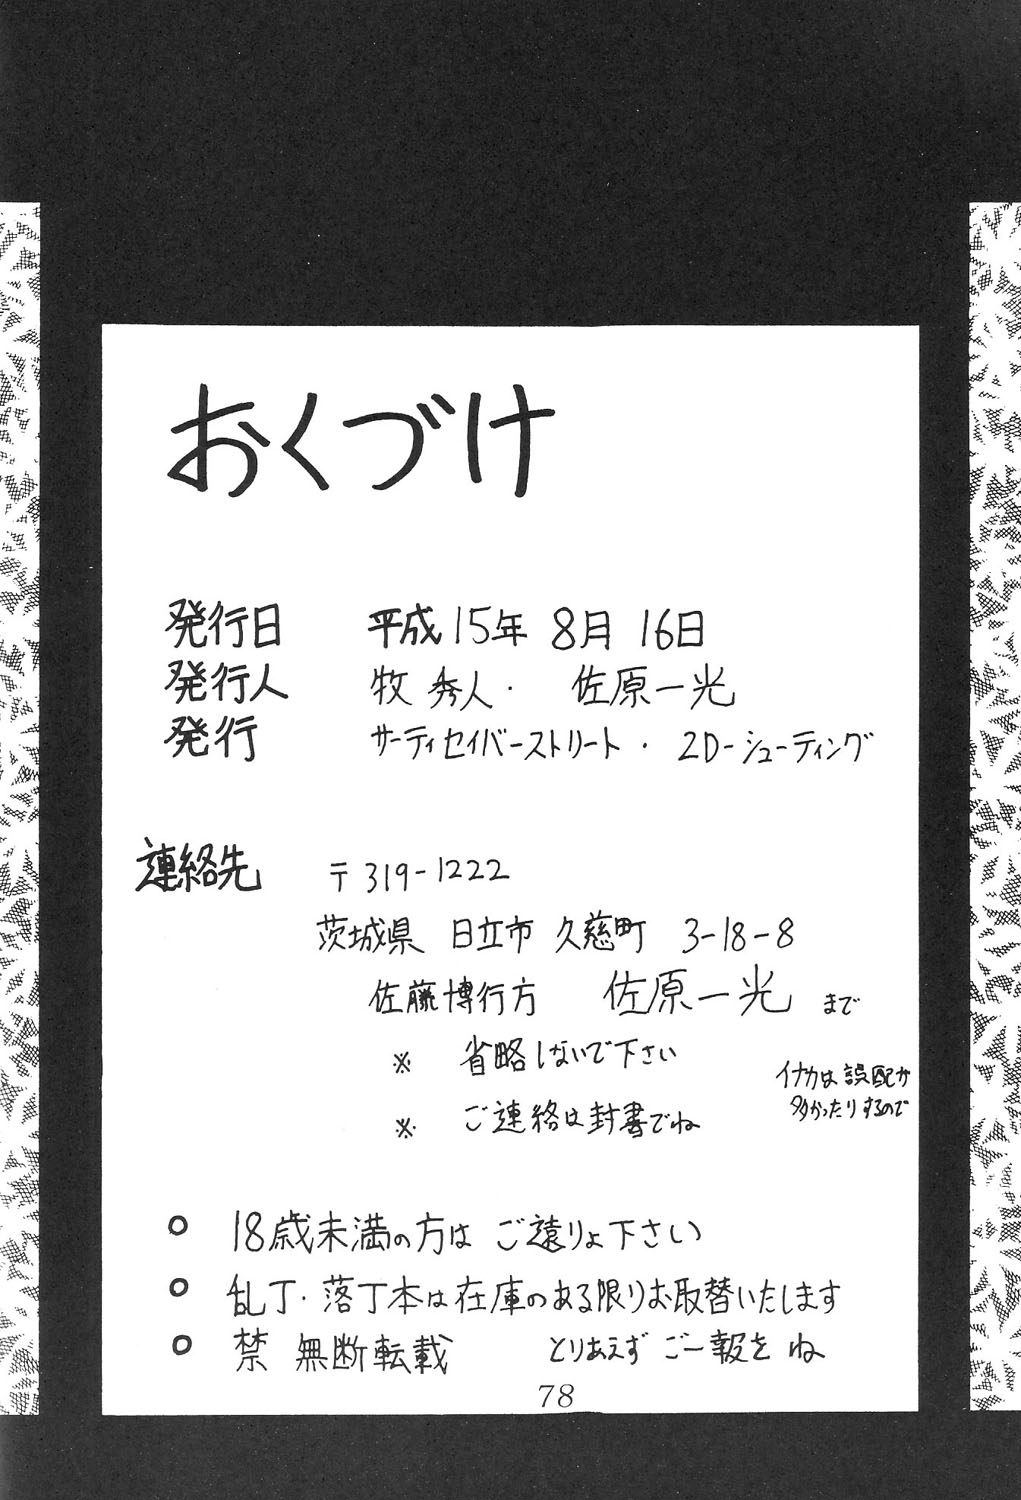 おくづけ
発行日 平成15年 8月 16日
発行人 牧 秀人・ 佐原一光
発行 サーティセイバーストリート ・ 2D-シューティング
連絡先 〒319-1222
茨城県 日立市 久慈町 3-18-8
佐藤博行方 佐原一光 まで
※ 省略しないで下さい
イナカは誤配が
多かったりするので
※ ご連絡は封書でね
○ 18歳未満の方は ご遠りょ下さい
○ 乱丁・落丁本は在庫のある限りお取替いたします
○ 禁 無断転載 とりあえず ご一報を ね
78